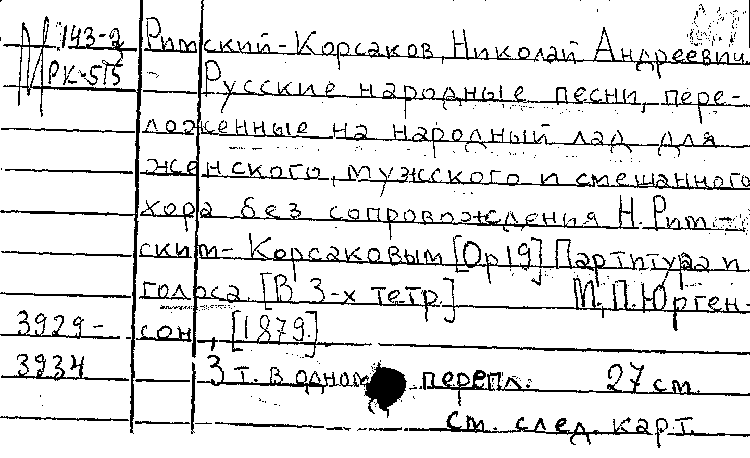 143-2 Римский-Корсаков, Николай Андреевич
РК-515 - Русские народные песни, пере-
ложенные на народный лад для
женского, мужского и смешанного
хора без сопровождения Н. Рим-
ским-Корсаковым [Op 19] Партитура и
голоса. [В 3-х тетр.] М., П. Юрген-
3929- сон, [1879.]
3934 3 т. в одном перепл. 27 см.
См. след. карт.